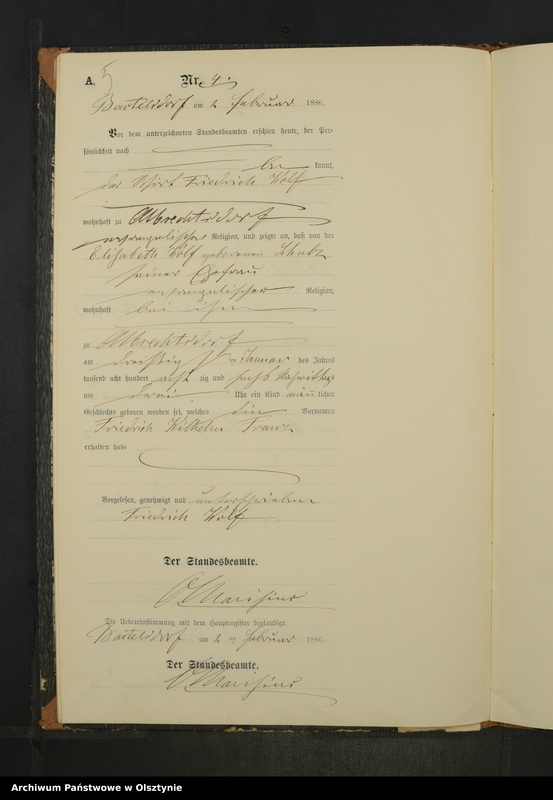 A. 5 Nr. 4.
Bartelsdorf am 2 Februar 1886.
Vor dem unterzeichneten Standesbeamten erschien heute, der Per-
sönlichkeit nach
be kannt,
der Wirt Friedrich Wolf
wohnhaft zu Albrechtsdorf
evangelischer Religion, und zeigte an, daß von der
Elisabeth Wolf geborenen Schulz
seiner Ehefrau
evangelischer Religion,
wohnhaft bei ihm
zu Albrechtsdorf
am dreißigsten Januar des Jahres
tausend acht hundert acht zig und sechs Nachmittags
um drei Uhr ein Kind männ lichen
Geschlechts geboren worden sei, welches die Vornamen
Friedrich Wilhelm Franz
erhalten habe
Vorgelesen, genehmigt und unterschrieben
Friedrich Wolf
Der Standesbeamte.
Die Uebereinstimmung mit dem Hauptregister beglaubigt.
Bartelsdorf am 2 ten Februar 1886.
Der Standesbeamte.
Archiwum Państwowe w Olsztynie